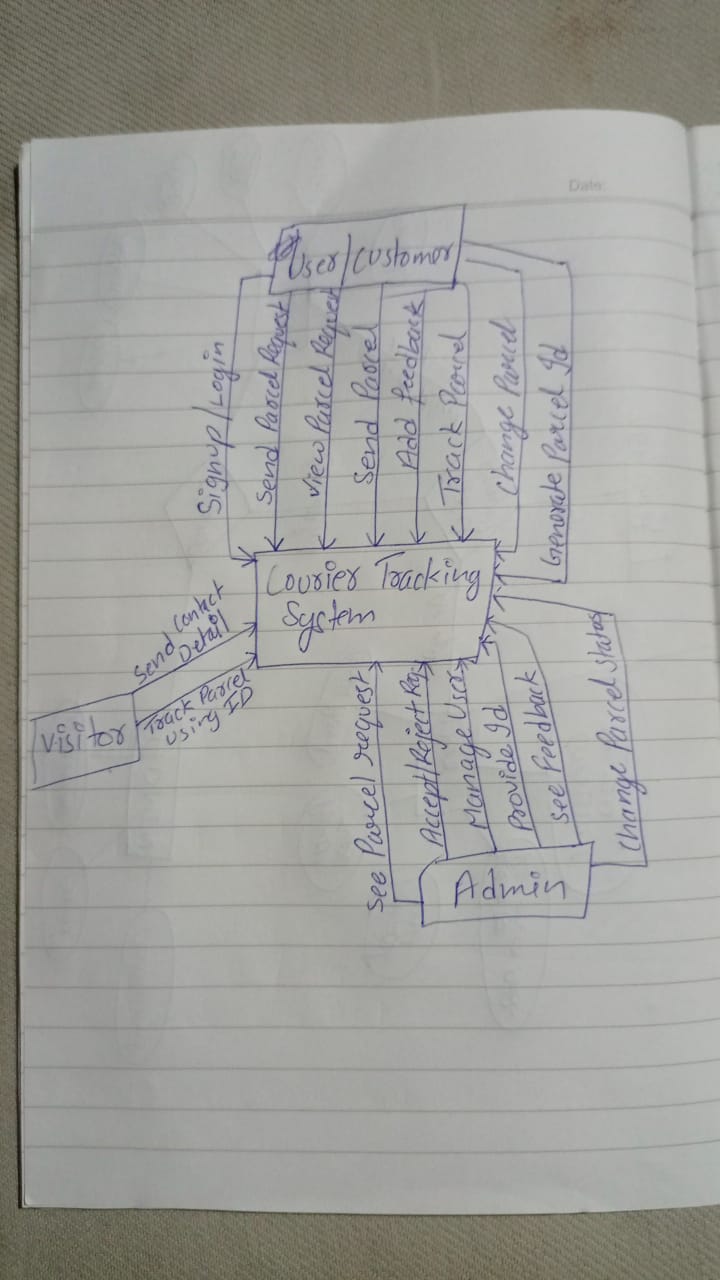 Date:
User/Customer
Signup/Login
Send Parcel Request
View Parcel Request
Send Parcel
Add feedback
Track Parcel
Change Parcel
Generate Parcel Id
Courier Tracking
System
Send Contact
Detail
Track Parcel
using ID
Visitor
See Parcel request
Accept/Reject Req
Manage User
Provide Id
See Feedback
Change Parcel Status
Admin